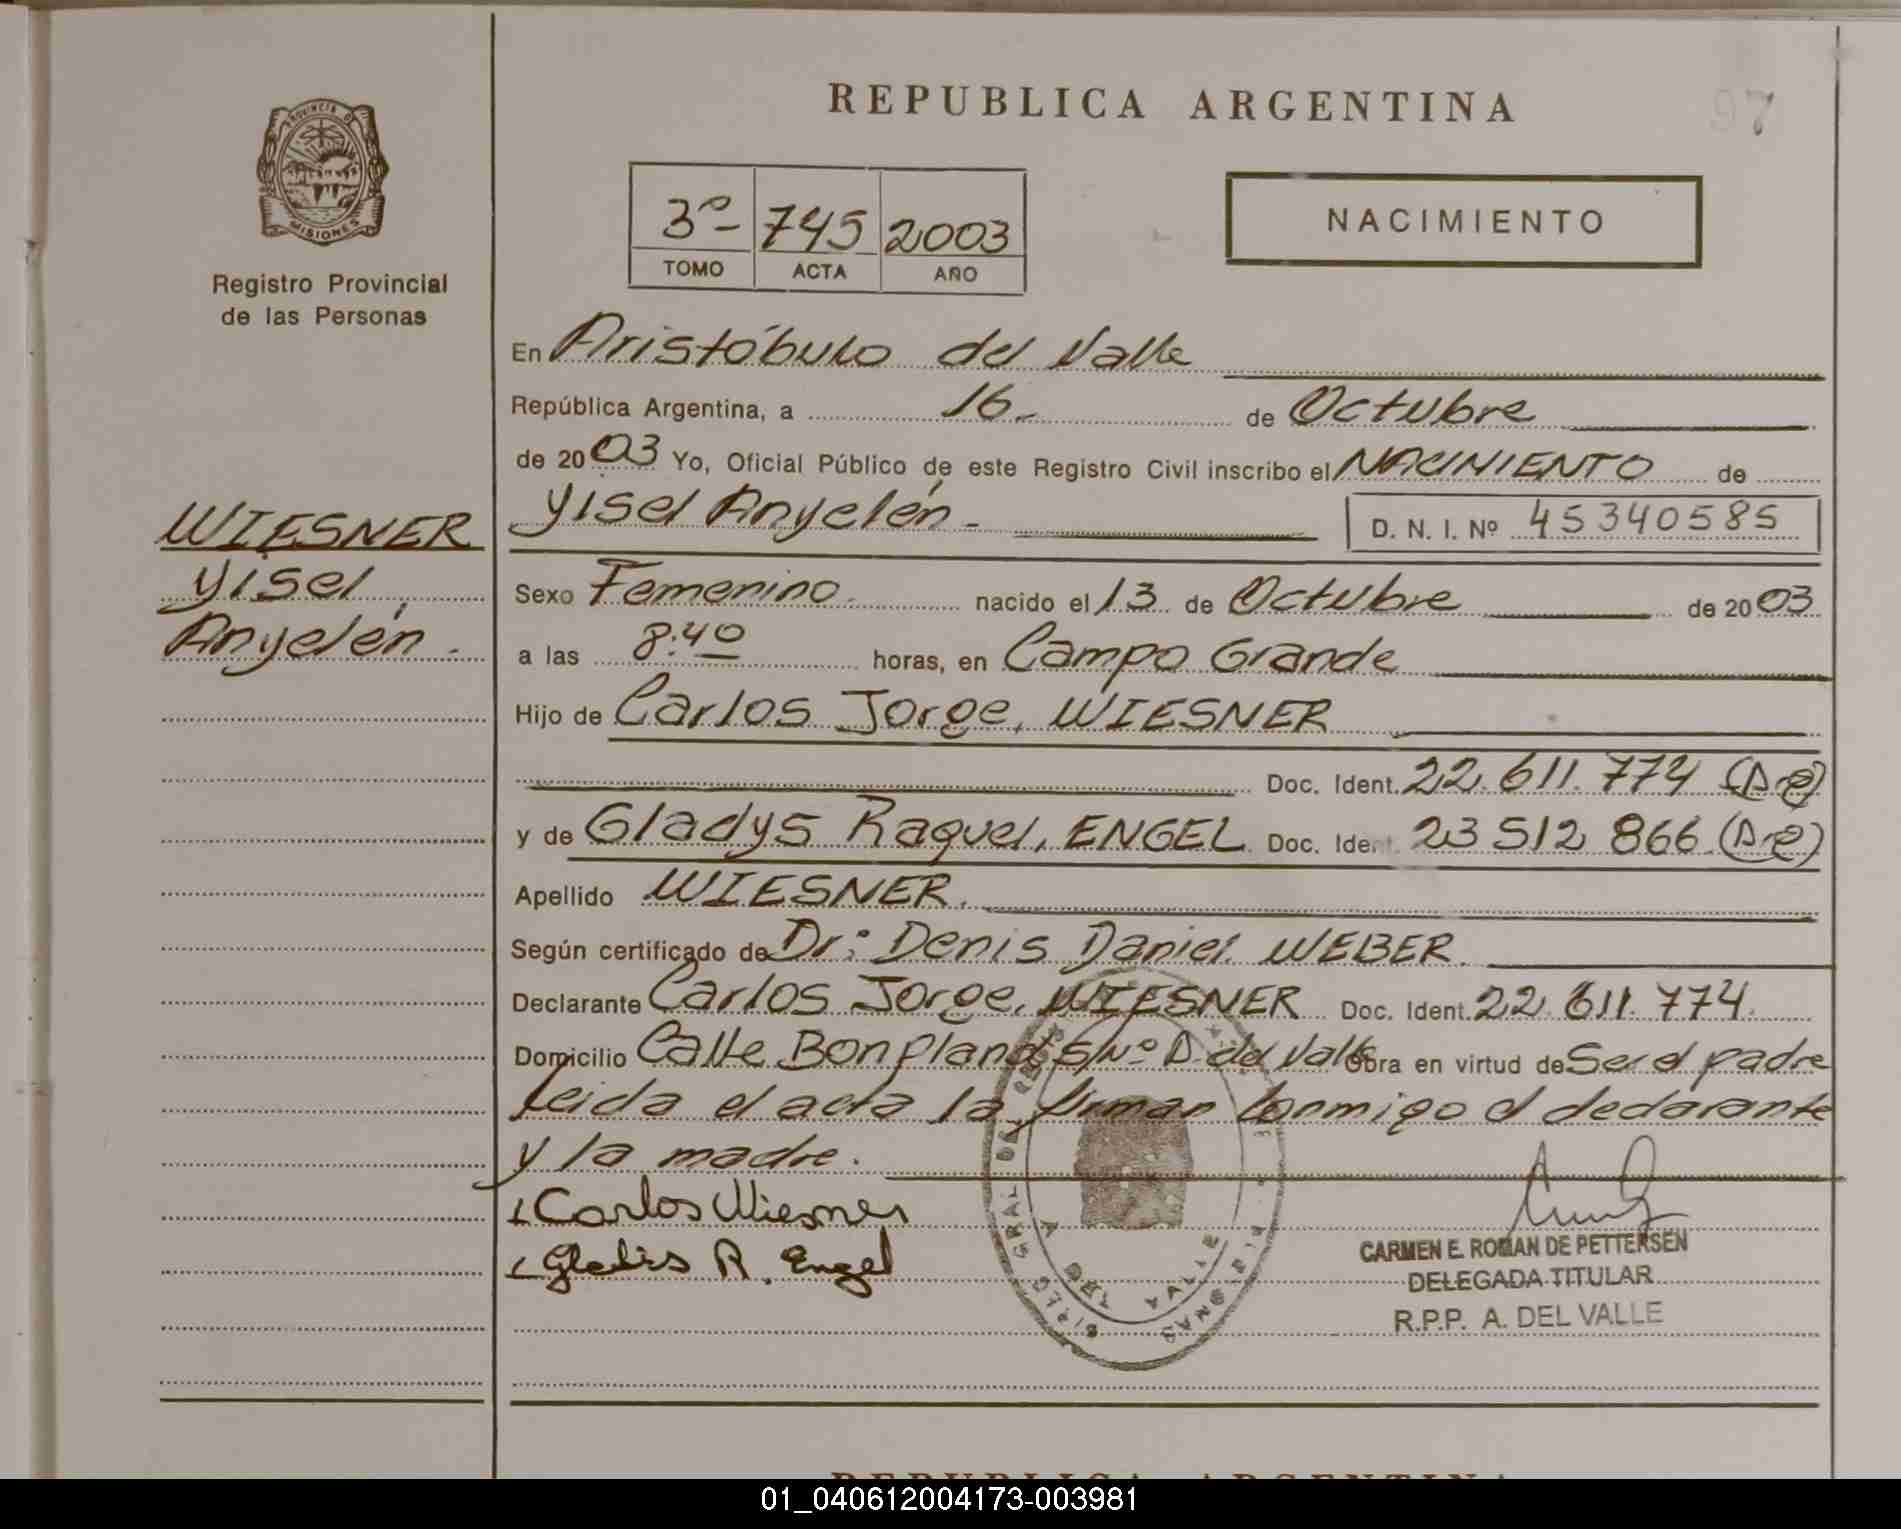 REPUBLICA ARGENTINA
97
PROVINCIA DE
MISIONES
Registro Provincial
de las Personas
3º- 745 2003
TOMO ACTA AÑO
NACIMIENTO
En Aristóbulo del Valle
República Argentina, a 16 de Octubre
de 2003 Yo, Oficial Público de este Registro Civil inscribo el NACIMIENTO de
Yisel Anyelén.
D. N. I. Nº 45340585
WIESNER
Yisel
Anyelén.
Sexo Femenino. nacido el 13 de Octubre de 2003
a las 8:40 horas, en Campo Grande
Hijo de Carlos Jorge, WIESNER
Doc. Ident. 22.611.774
y de Gladys Raquel, ENGEL Doc. Ident. 23 512 866
Apellido WIESNER.
Según certificado de Dr: Denis Daniel WEBER.
Declarante Carlos Jorge, WIESNER Doc. Ident. 22.611.774.
Domicilio Calle Bonpland S/Nº A. del Valle Obra en virtud de Ser el padre
Leida el acta la firman Conmigo el declarante
y la madre.
Carlos Wiesner
Gladis R. Engel
CARMEN E. ROMAN DE PETTERSEN
DELEGADA TITULAR
R.P.P. A. DEL VALLE
REPUBLICA ARGENTINA
01_040612004173-003981